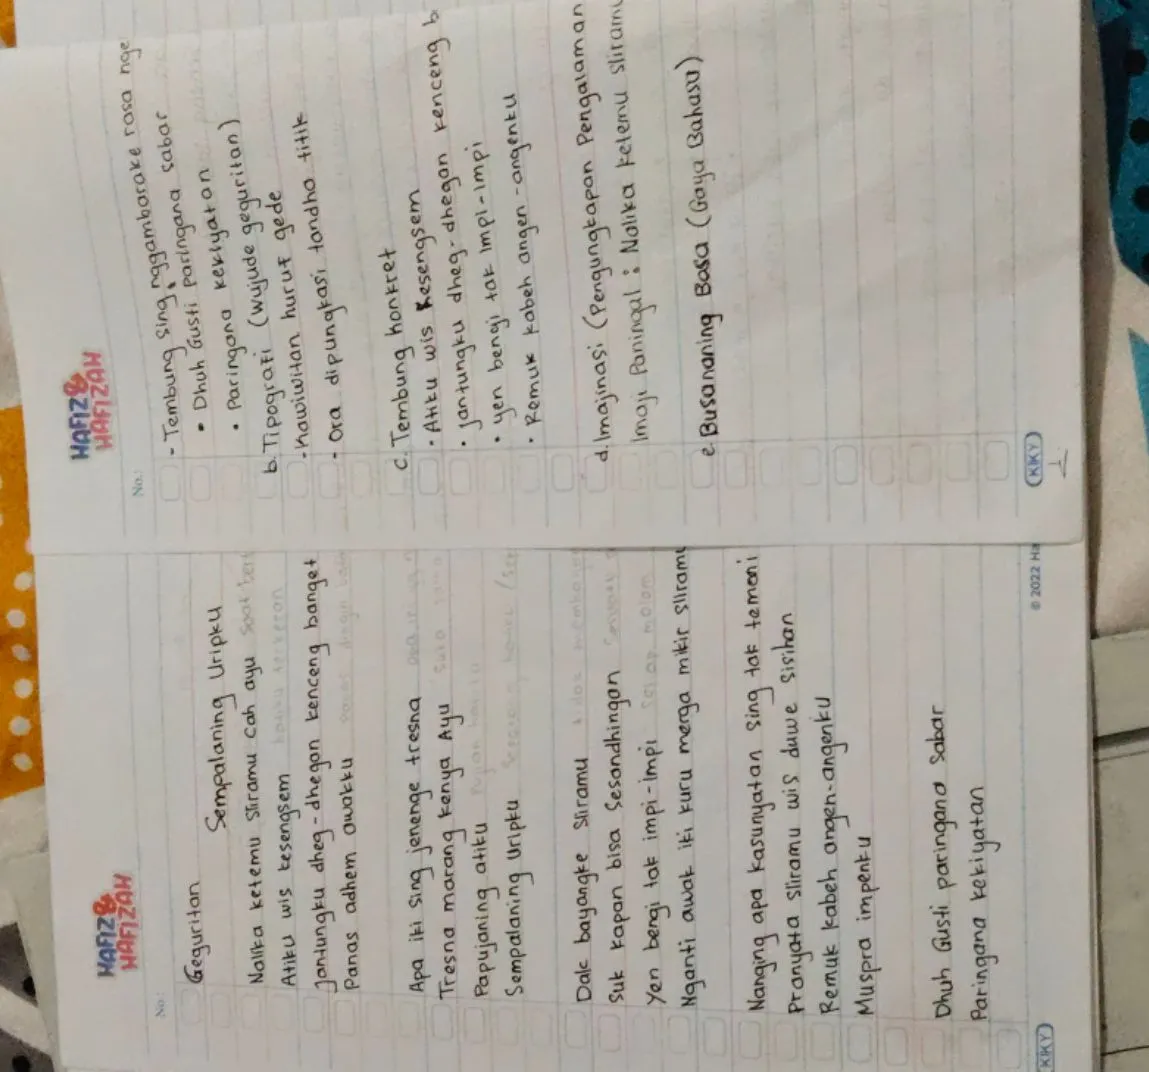 HAFIZ &
HAFIZAH
No.:
Geguritan
Sempalaning Uripku
Nalika ketemu sliramu cah ayu saat
Atiku wis kesengsem
Jantungku dheg-dhegan kenceng banget
Panas adhem awakku
Apa iki sing jenenge tresna
Tresna marang kenya Ayu
Papujaning atiku
Sempalaning Uripku
Dak bayangke sliramu
Suk kapan bisa sesandhingan
Yen bengi tak impi-impi
Nganti awak iki kuru merga mikir sliramu
Nanging apa kasunyatan sing tak temoni
Pranyata sliramu wis duwe sisihan
Remuk kabeh angen-angenku
Muspra impenku
Dhuh Gusti paringana sabar
Paringana kekiyatan
KIKY
© 2022 Ha
HAFIZ &
HAFIZAH
No.:
- Tembung sing nggambarake rasa nge
• Dhuh Gusti paringana sabar
• Paringana kekiyatan
b. Tipografi (wujude geguritan)
- Kawiwitan huruf gede
- Ora dipungkasi tandha titik
c. Tembung konkret
• Atiku wis kesengsem
• Jantungku dheg-dhegan kenceng b
• yen bengi tak impi-impi
• Remuk kabeh angen-angenku
d. Imajinasi (Pengungkapan Pengalaman
Imaji Paningal : Nalika ketemu sliramu
e. Busananing Basa (Gaya Bahasa)
KIKY